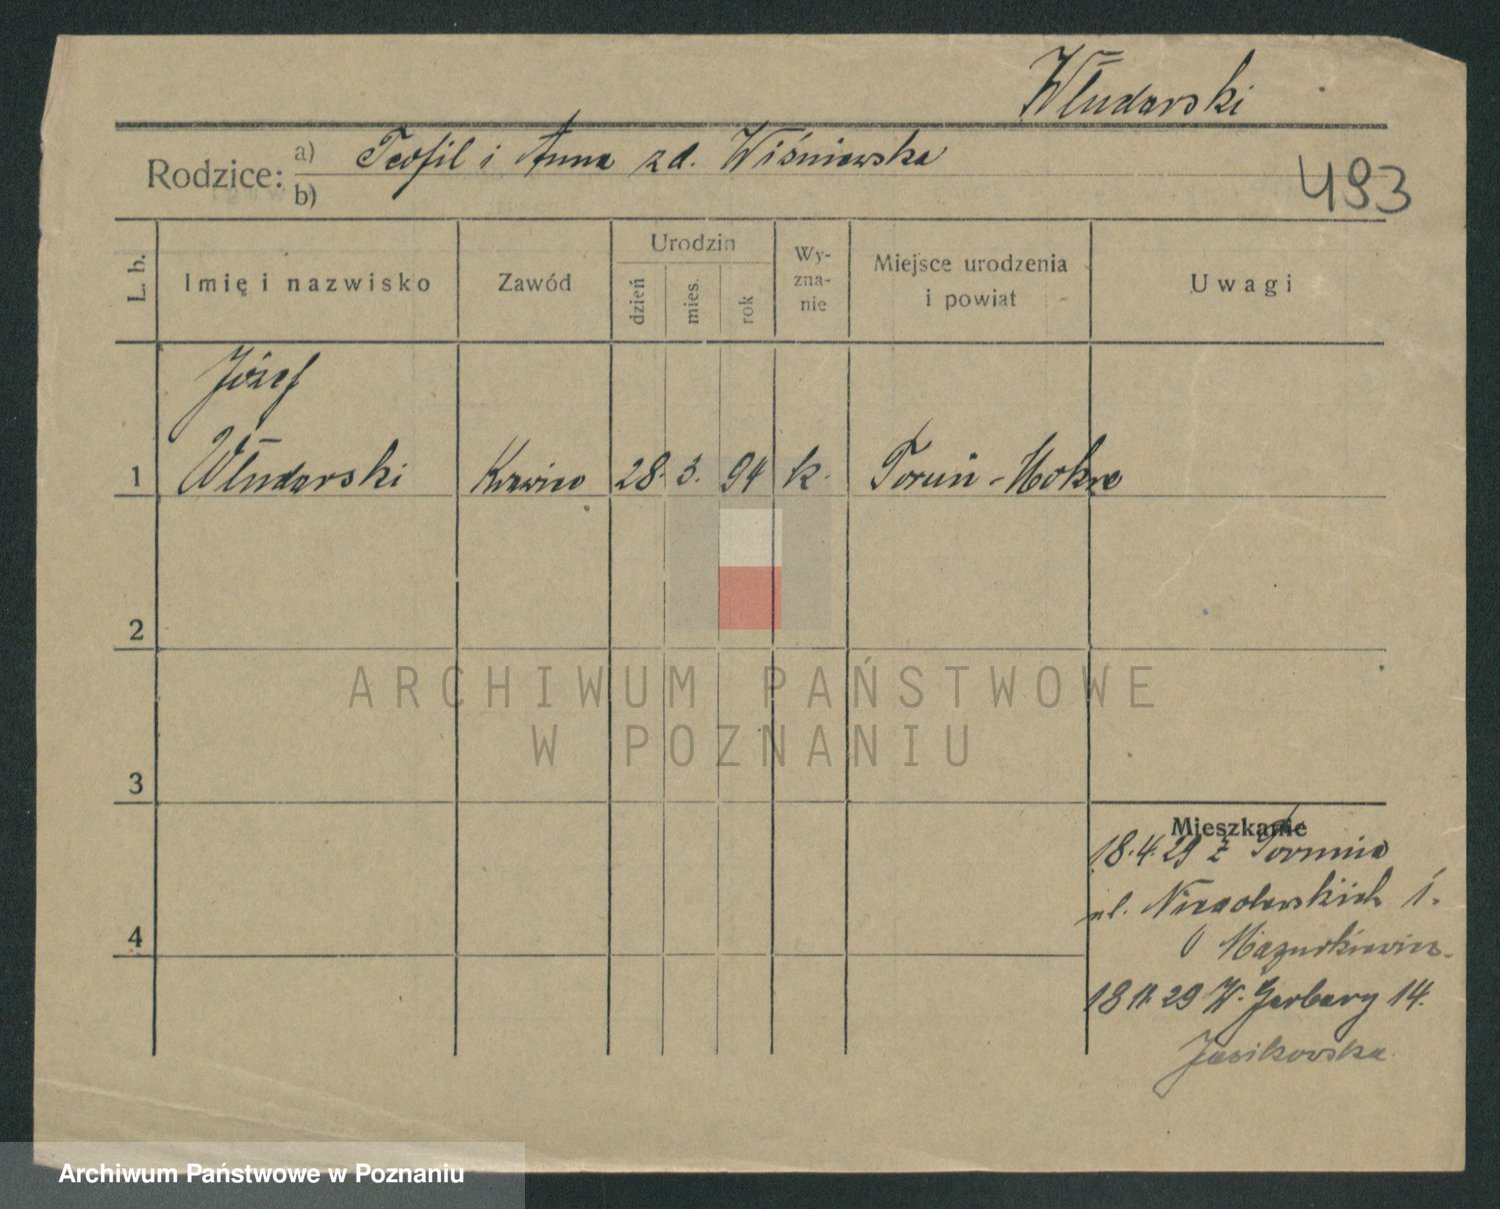 Włudarski
Rodzice: a) Teofil i Anna zd. Wiśniewska
b)
493
L. b.
Imię i nazwisko
Zawód
Urodzin
dzień
mies.
rok
Wy-
zna-
nie
Miejsce urodzenia
i powiat
Uwagi
Józef
1 Włudarski Krawiec 28. 3. 94 k. Toruń - Mokre
2
3
4
Mieszkanie
18.4.29 z Torunia
ul. Niegolewskich 1.
Mazurkiewicz.
18 11. 29 W. Garbary 14.
Jasikowska
ARCHIWUM PAŃSTWOWE
W POZNANIU
Archiwum Państwowe w Poznaniu